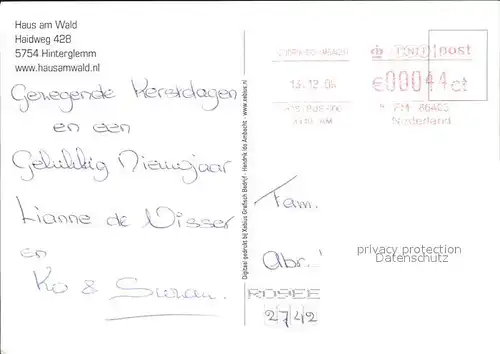 Haus am Wald
Haidweg 428
5754 Hinterglemm
www.hausamwald.nl
Gezegende Kerstdagen
en een
Gelukkig Nieuwjaar
Lianne de Visser
en
Ko & Suzan.
Digitaal gedrukt bij Xebius Grafisch Bedrijf - Hendrik Ido Ambacht - www.xebius.nl
TPG post
13.12.06
€00044ct
FM
Nederland
Fam.
Abr.
privacy protection
Datenschutz
ROSEE
2742